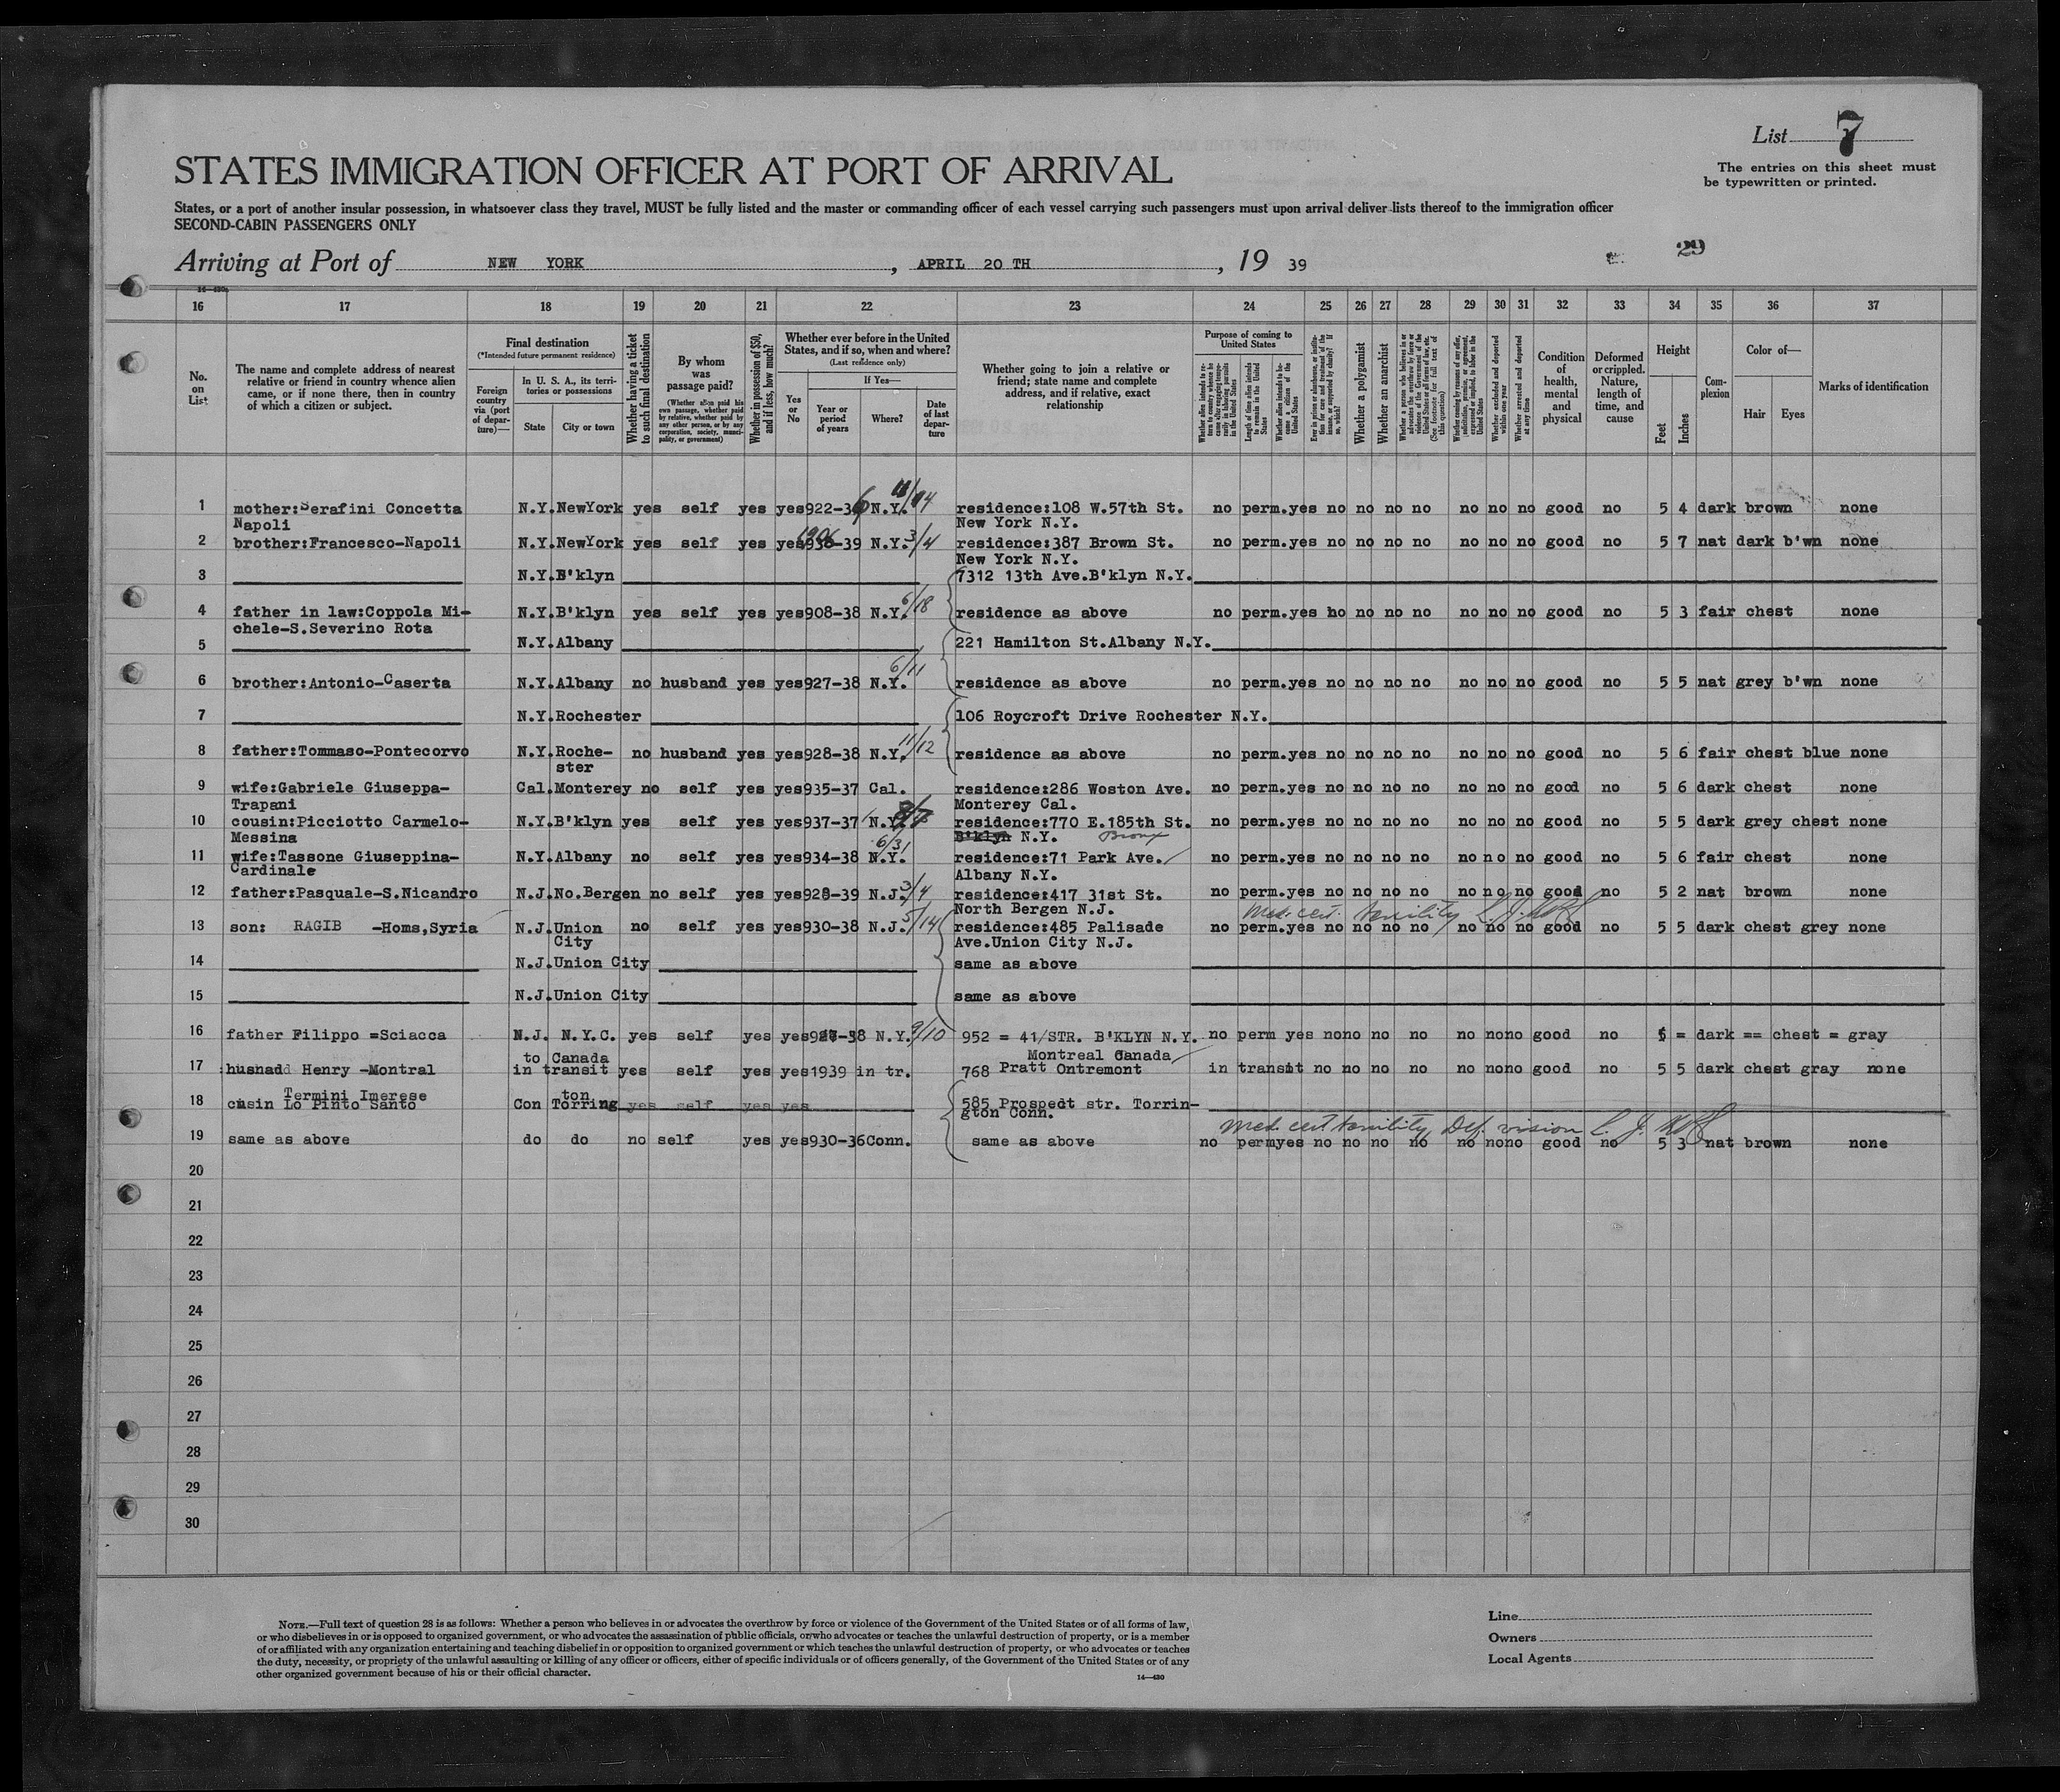 List 7
The entries on this sheet must
be typewritten or printed.
STATES IMMIGRATION OFFICER AT PORT OF ARRIVAL
States, or a port of another insular possession, in whatsoever class they travel, MUST be fully listed and the master or commanding officer of each vessel carrying such passengers must upon arrival deliver lists thereof to the immigration officer
SECOND-CABIN PASSENGERS ONLY
29
Arriving at Port of NEW YORK, APRIL 20 TH, 19 39
16 17 18 19 20 21 22 23 24 25 26 27 28 29 30 31 32 33 34 35 36 37
No. on List
The name and complete address of nearest
relative or friend in country whence alien
came, or if none there, then in country
of which a citizen or subject.
Final destination
(*Intended future permanent residence)
Foreign country via (port of departure)—
In U. S. A., its territories or possessions
State
City or town
Whether having a ticket to such final destination
By whom was passage paid?
(Whether alien paid his own passage, whether paid by relative, whether paid by any other person, or by any corporation, society, municipality, or government)
Whether in possession of $50, and if less, how much?
Whether ever before in the United States, and if so, when and where?
(Last residence only)
Yes or No
If Yes—
Year or period of years
Where?
Date of last departure
Whether going to join a relative or
friend; state name and complete
address, and if relative, exact
relationship
Purpose of coming to United States
Whether alien intends to return to country whence he came after engaging temporarily in laboring pursuits in the United States
Length of time alien intends to remain in the United States
Whether alien intends to become a citizen of the United States
Ever in prison or almshouse, or institution for care and treatment of the insane, or supported by charity? If so, which?
Whether a polygamist
Whether an anarchist
Whether a person who believes in or advocates the overthrow by force or violence of the Government of the United States or all forms of law, etc. (See footnote for full text of this question)
Whether coming by reason of any offer, solicitation, promise, or agreement, expressed or implied, to labor in the United States
Whether excluded and deported within one year
Whether arrested and deported at any time
Condition of health, mental and physical
Deformed or crippled. Nature, length of time, and cause
Height
Feet
Inches
Complexion
Color of—
Hair
Eyes
Marks of identification
1 mother:Serafini Concetta N.Y. NewYork yes self yes yes 922-36 N.Y. residence:108 W.57th St. no perm. yes no no no no no no no good no 5 4 dark brown none
Napoli New York N.Y.
2 brother:Francesco-Napoli N.Y. NewYork yes self yes yes 938-39 N.Y. 3/4 residence:387 Brown St. no perm. yes no no no no no no no good no 5 7 nat dark b'wn none
1906
New York N.Y.
3 N.Y. B'klyn 7312 13th Ave.B'klyn N.Y.
4 father in law:Coppola Mi- N.Y. B'klyn yes self yes yes 908-38 N.Y. 6/18 residence as above no perm. yes no no no no no no no good no 5 3 fair chest none
chele-S.Severino Rota
5 N.Y. Albany 221 Hamilton St.Albany N.Y.
6 brother:Antonio-Caserta N.Y. Albany no husband yes yes 927-38 N.Y. 6/11 residence as above no perm. yes no no no no no no no good no 5 5 nat grey b'wn none
7 N.Y. Rochester 106 Roycroft Drive Rochester N.Y.
8 father:Tommaso-Pontecorvo N.Y. Roche- no husband yes yes 928-38 N.Y. 11/12 residence as above no perm. yes no no no no no no no good no 5 6 fair chest blue none
ster
9 wife:Gabriele Giuseppa- Cal. Monterey no self yes yes 935-37 Cal. residence:286 Woston Ave. no perm. yes no no no no no no no good no 5 6 dark chest none
Trapani Monterey Cal.
10 cousin:Picciotto Carmelo- N.Y. B'klyn yes self yes yes 937-37 N.Y. residence:770 E.185th St. no perm. yes no no no no no no no good no 5 5 dark grey chest none
Messina B'klyn N.Y. Bronx
11 wife:Tassone Giuseppina- N.Y. Albany no self yes yes 934-38 N.Y. 6/31 residence:71 Park Ave. no perm. yes no no no no no no no good no 5 6 fair chest none
Cardinale Albany N.Y.
12 father:Pasquale-S.Nicandro N.J. No.Bergen no self yes yes 928-39 N.J. 3/4 residence:417 31st St. no perm. yes no no no no no no no good no 5 2 nat brown none
North Bergen N.J. Med. cert. senility
13 son: RAGIB -Homs,Syria N.J. Union no self yes yes 930-38 N.J. 5/14 residence:485 Palisade no perm. yes no no no no no no no good no 5 5 dark chest grey none
City Ave.Union City N.J.
14 N.J. Union City same as above
15 N.J. Union City same as above
16 father Filippo =Sciacca N.J. N.Y.C. yes self yes yes N.Y. 9/10 952 = 41/STR. B'KLYN N.Y. no perm yes no no no no no no no good no 5 = dark == chest = gray
to Canada Montreal Canada
17 :husnadd Henry -Montral in transit yes self yes yes 1939 in tr. 768 Pratt Ontremont in transit no no no no no no no good no 5 5 dark chest gray none
Termini Imerese ton
18 cusin Lo Pinto Santo Con Torring yes self yes yes 585 Prospedt str. Torrin-
gton Conn.
Med. cert senility, Def. vision
19 same as above do do no self yes yes 930-36 Conn. same as above no perm yes no no no no no no no good no 5 3 nat brown none
20
21
22
23
24
25
26
27
28
29
30
NOTE.—Full text of question 28 is as follows: Whether a person who believes in or advocates the overthrow by force or violence of the Government of the United States or of all forms of law,
or who disbelieves in or is opposed to organized government, or who advocates the assassination of public officials, or who advocates or teaches the unlawful destruction of property, or is a member
of or affiliated with any organization entertaining and teaching disbelief in or opposition to organized government or which teaches the unlawful destruction of property, or who advocates or teaches
the duty, necessity, or propriety of the unlawful assaulting or killing of any officer or officers, either of specific individuals or of officers generally, of the Government of the United States or of any
other organized government because of his or their official character.
14—430
Line
Owners
Local Agents